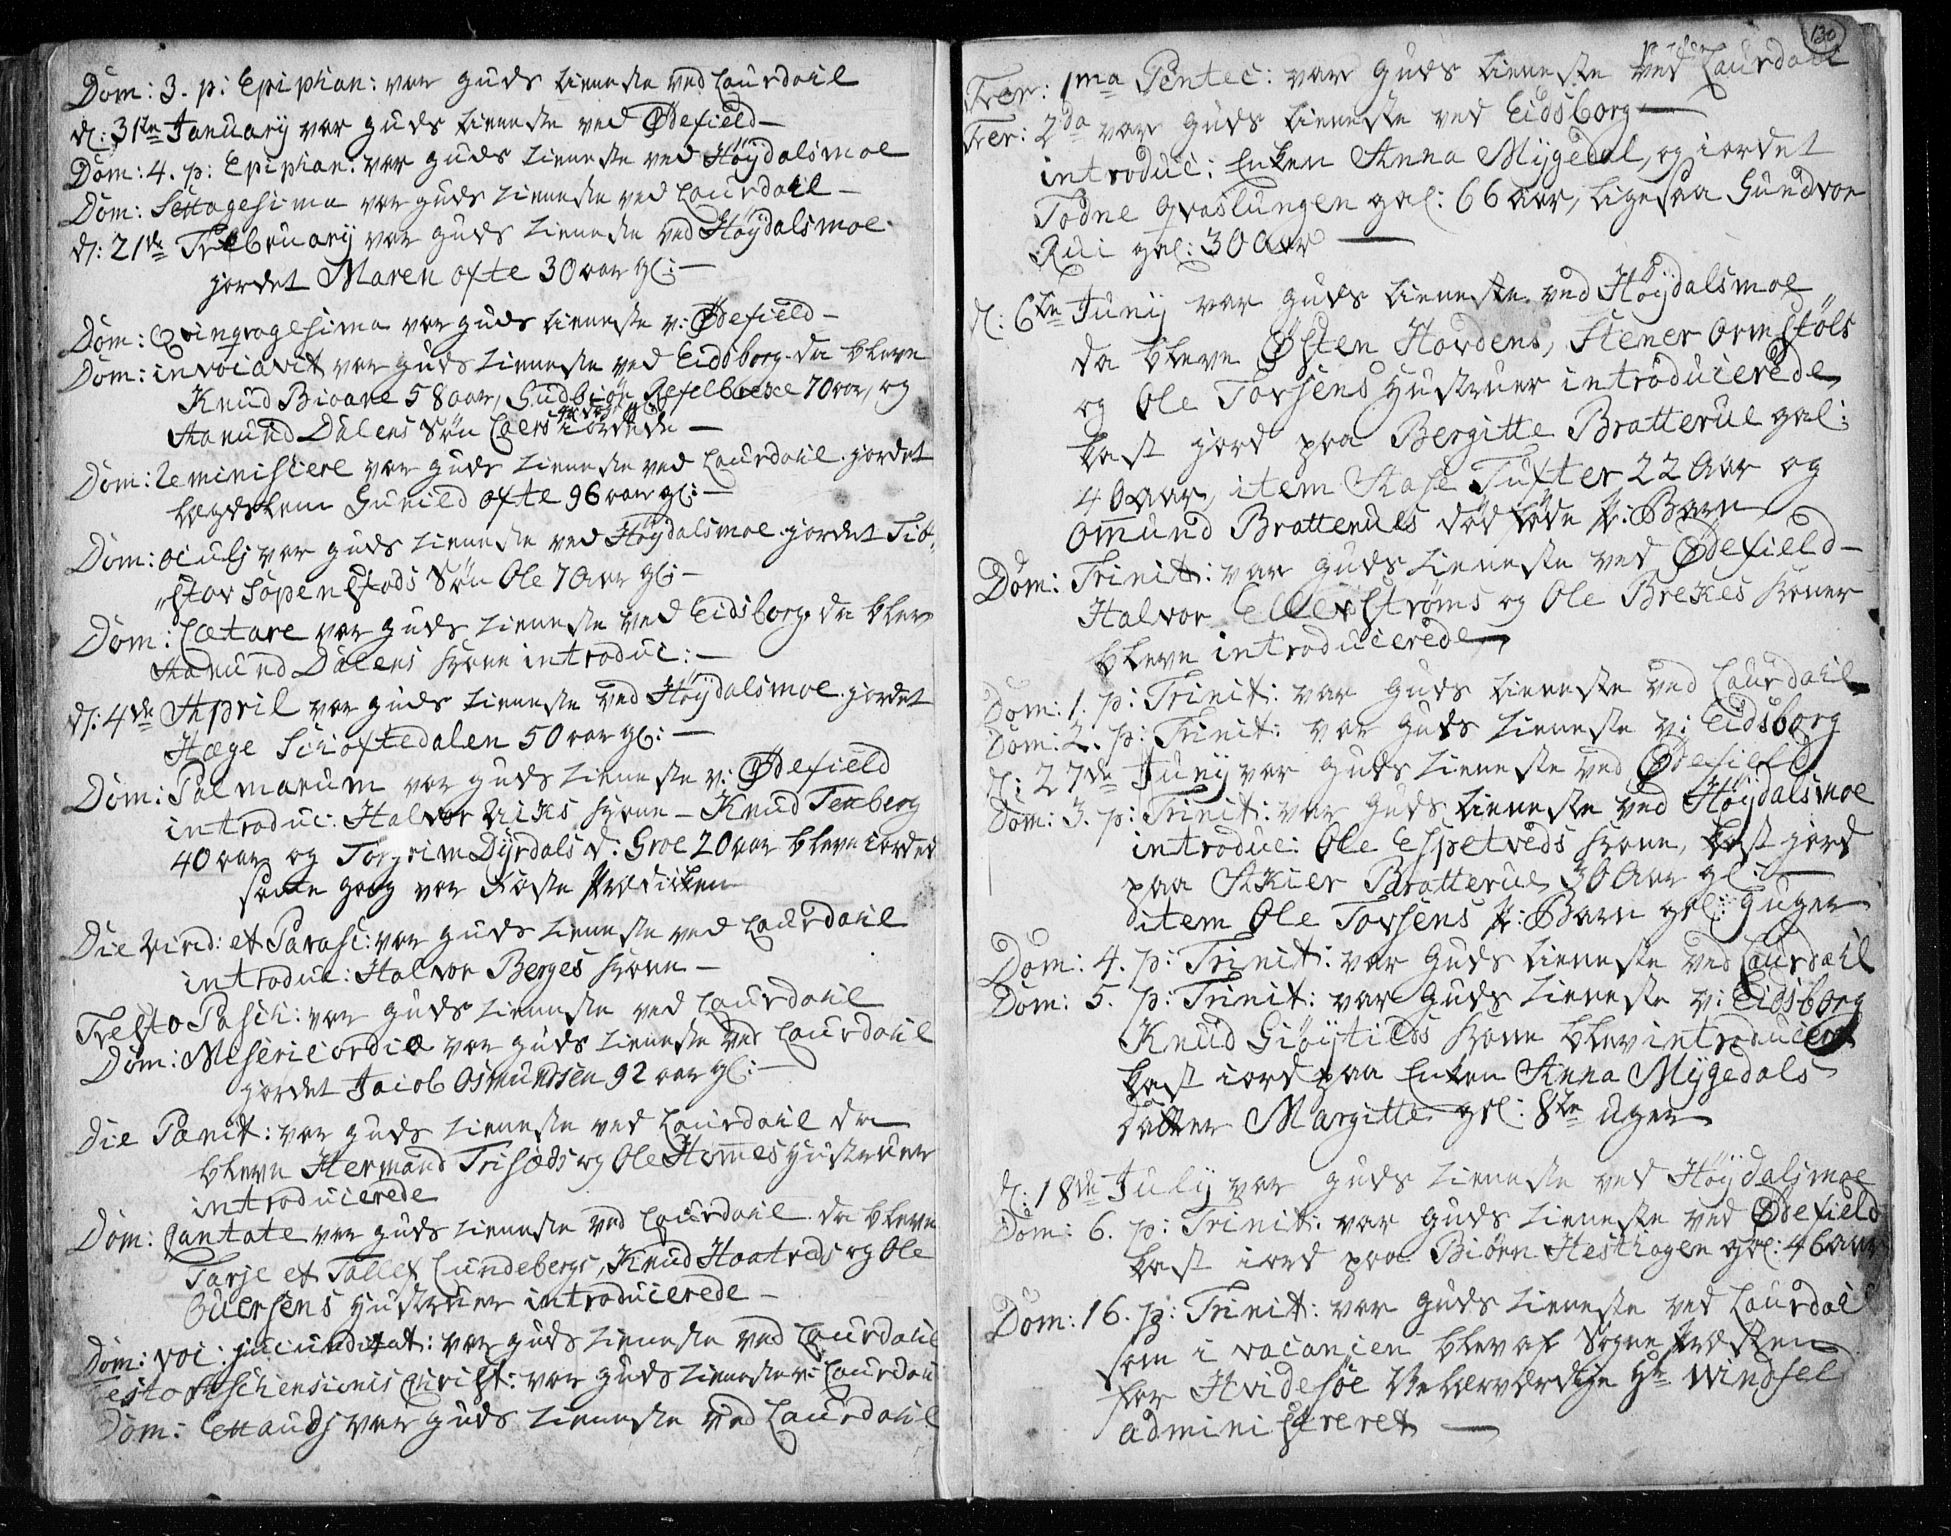 Dom: 3. p: Epiphan: var Guds tieneste ved Laurdahl
d: 31te January var Guds tieneste ved Ødefield –
Dom: 4. p: Epiphan: var Guds tieneste ved Høydalsmoe
Dom: Septuagesima var Guds tieneste ved Laurdahl –
d: 21de February var Guds tieneste ved Høydalsmoe.
jordet Maren Ofte 30 aar gl: –
Dom: Qvinqvagesima var Guds tieneste v: Ødefield –
Dom: invocavit var Guds tieneste ved Eidsborg. da bleve
Knud Bioane 58 aar, Gudbiør 70 aar, og
Aamund Dalens Søn Laers iordede –
Dom: Reminiscere var Guds tieneste ved Laurdahl. jordet
Lægdslem Gunild Ofte 96 aar gl: –
Dom: oculi var Guds tieneste ved Høydalsmoe. jordet
Søn Ole 7 Aar gl: –
Dom: Lætare var Guds tieneste ved Eidsborg. da blev
Aamund Dalens Kone introduc: –
d: 4de April var Guds tieneste ved Høydalsmoe. jordet
Hæge Schaftedalen 50 aar gl: –
Dom: Palmarum var Guds tieneste v: Ødefield
introduc: Halvor Kone – Knud Texberg
40 aar og Torgrim Dyrdals d: Groe 20 aar bleve iorded
samme gang var Faste Prædicken
Die Virid: et Parasc: var Guds tieneste ved Laurdahl
introduc: Halvor Berges Kone –
Festo Pasch: var Guds tieneste ved Laurdahl
Dom: Misericordiæ var Guds tieneste ved Laurdahl
jordet Jacob Osmundsen 92 aar gl: –
Die Pænit: var Guds tieneste ved Laurdahl da
bleve Hermand Trisæds og Ole Homes Hustruer
introducerede
Dom: Cantate var Guds tieneste ved Laurdahl. da bleve
Tarje et Tallef Lundebergs, Knud Haatveds og Ole
Hustruer introducerede –
Dom: voc: jucunditat: var Guds tieneste ved Laurdahl
Festo Aschensionis Christ: var Guds tieneste v: Laurdahl
Dom: Exaudj var Guds tieneste ved Laurdahl
130
Fer: 1ma Pentec: var Guds tieneste ved Laurdahl
Fer: 2da var Guds tieneste ved Eidsborg –
introduc: Enken Anna Mygedal, og iordet
Todne Graslungen gal: 66 aar, ligesaa Gundvor
Rui gal: 30 Aar –
d: 6te Junij var Guds tieneste ved Høydalsmoe
da bleve Østen Hovdens, Stener Ormstøls
og Ole Torsens Hustruer introducerede,
kast jord paa Bergitte Bratterue gal:
40 aar, item Aase Tufter 22 Aar og
Omund Bratterues død føde P: Barn
Dom: Trinit: var Guds tieneste ved Ødefield –
Halvor Ellefstrøms og Ole Brekes Koner
bleve introducerede
Dom: 1. p: Trinit: var Guds tieneste ved Laurdahl
Dom: 2. p: Trinit: var Guds tieneste v: Eidsborg
d: 27de Junij var Guds tieneste ved Ødefield
Dom: 3. p: Trinit: var Guds tieneste ved Høydalsmoe
introduc: Ole Espetveds Kone, kast jord
paa Bratterue 30 Aar gl: –
item Ole Torsens P: Barn gal: 9 uger
Dom: 4. p: Trinit: var Guds tieneste ved Laurdahl
Dom: 5. p: Trinit: var Guds tieneste v: Eidsborg
Knud Giøytilds Kone blev introducert
kast iord paa Enken Anna Mygedals
datter Margitte gal: 8te uger
d: 18de July var Guds tieneste ved Høydalsmoe
Dom: 6. p: Trinit: var Guds tieneste ved Ødefield
kast iord paa Biørn Hesthagen gal: 46 aar
Dom: 16. p: Trinit: var Guds tieneste ved Laurdal
som i vacancen blev af Sogne Præsten
for Hvidesøe Velærværdige Hr Windfel
administreret –